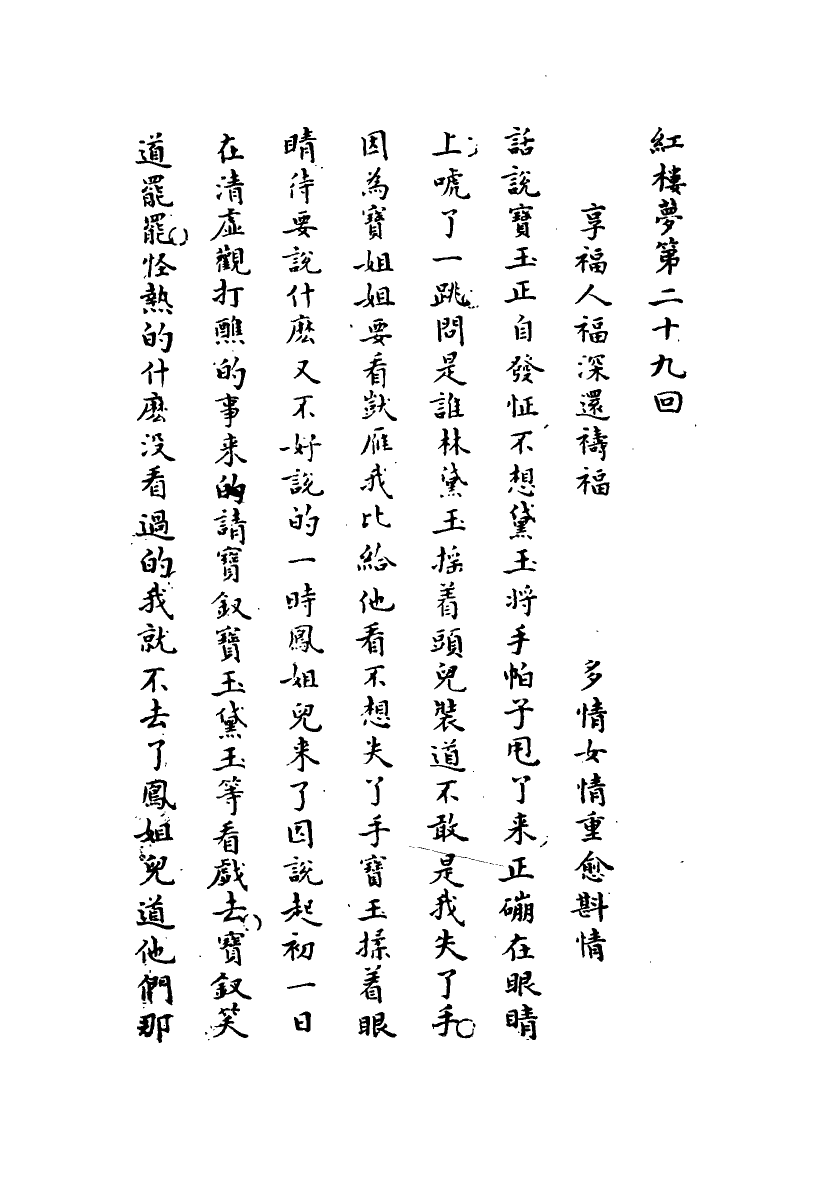 紅樓夢第二十九回
享福人福深還禱福 多情女情重愈斟情
話說寶玉正自發怔不想黛玉將手帕子甩了來正磞在眼睛
上唬了一跳問是誰林黛玉搖着頭兒裝道不敢是我失了手
因為寶姐姐要看獃雁我比給他看不想失了手寶玉揉着眼
睛待要說什麽又不好說的一時鳳姐兒来了因說起初一日
在清虛觀打醮的事来的請寶釵寶玉黛玉等看戲去寶釵笑
道罷罷怪熱的什麽没看過的我就不去了鳳姐兒道他們那